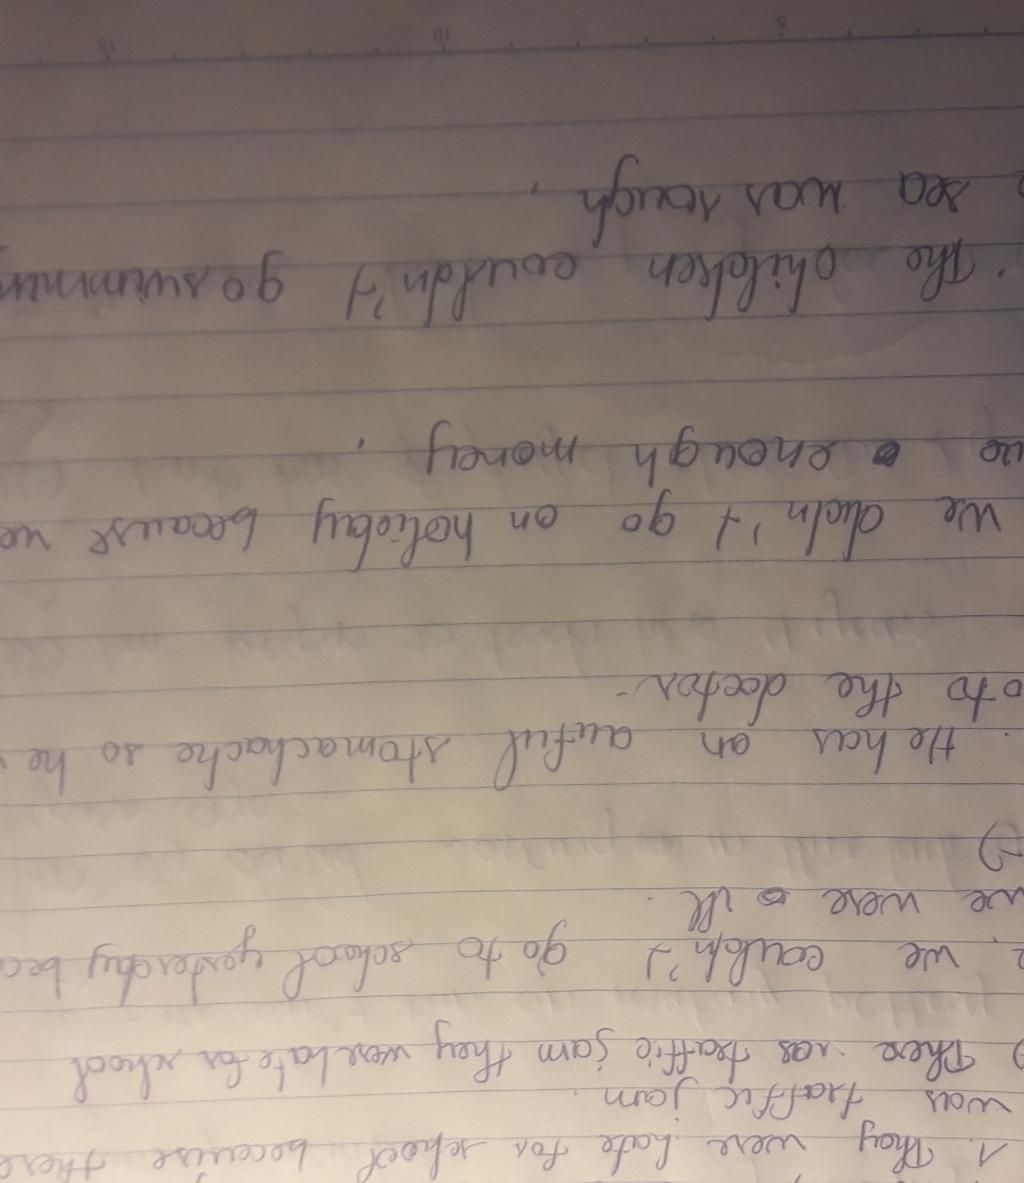 1. They were late for school because there
was traffic jam.
There was traffic jam they were late for school
2. we couldn't go to school yesterday
we were ill.
→
He has an awful stomachache so he
to the doctor.
We didn't go on holiday because we
enough money.
The children couldn't go
sea was rough.
5 10 15